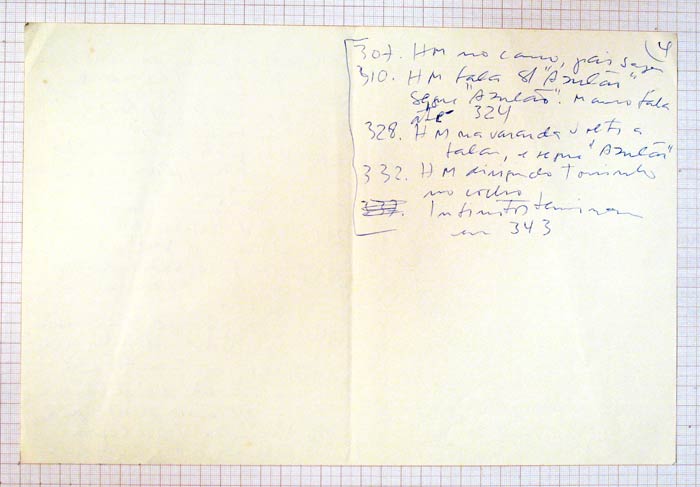 4
307. HM no carro, pais
310. HM fala s/ "Azulão"
segue "Azulão". Mauro fala
até 324
328. HM na varanda volta a
falar, e segue "Azulão"
332. HM dirigindo Toninho
no
337. Infinitos terminam
em 343